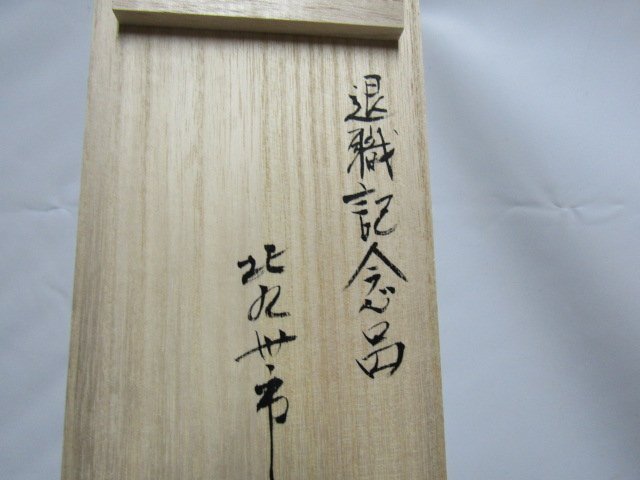 退職記念品
北九州市